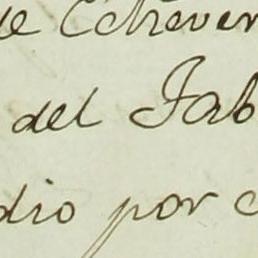 de Echever
del Fab
dio por c